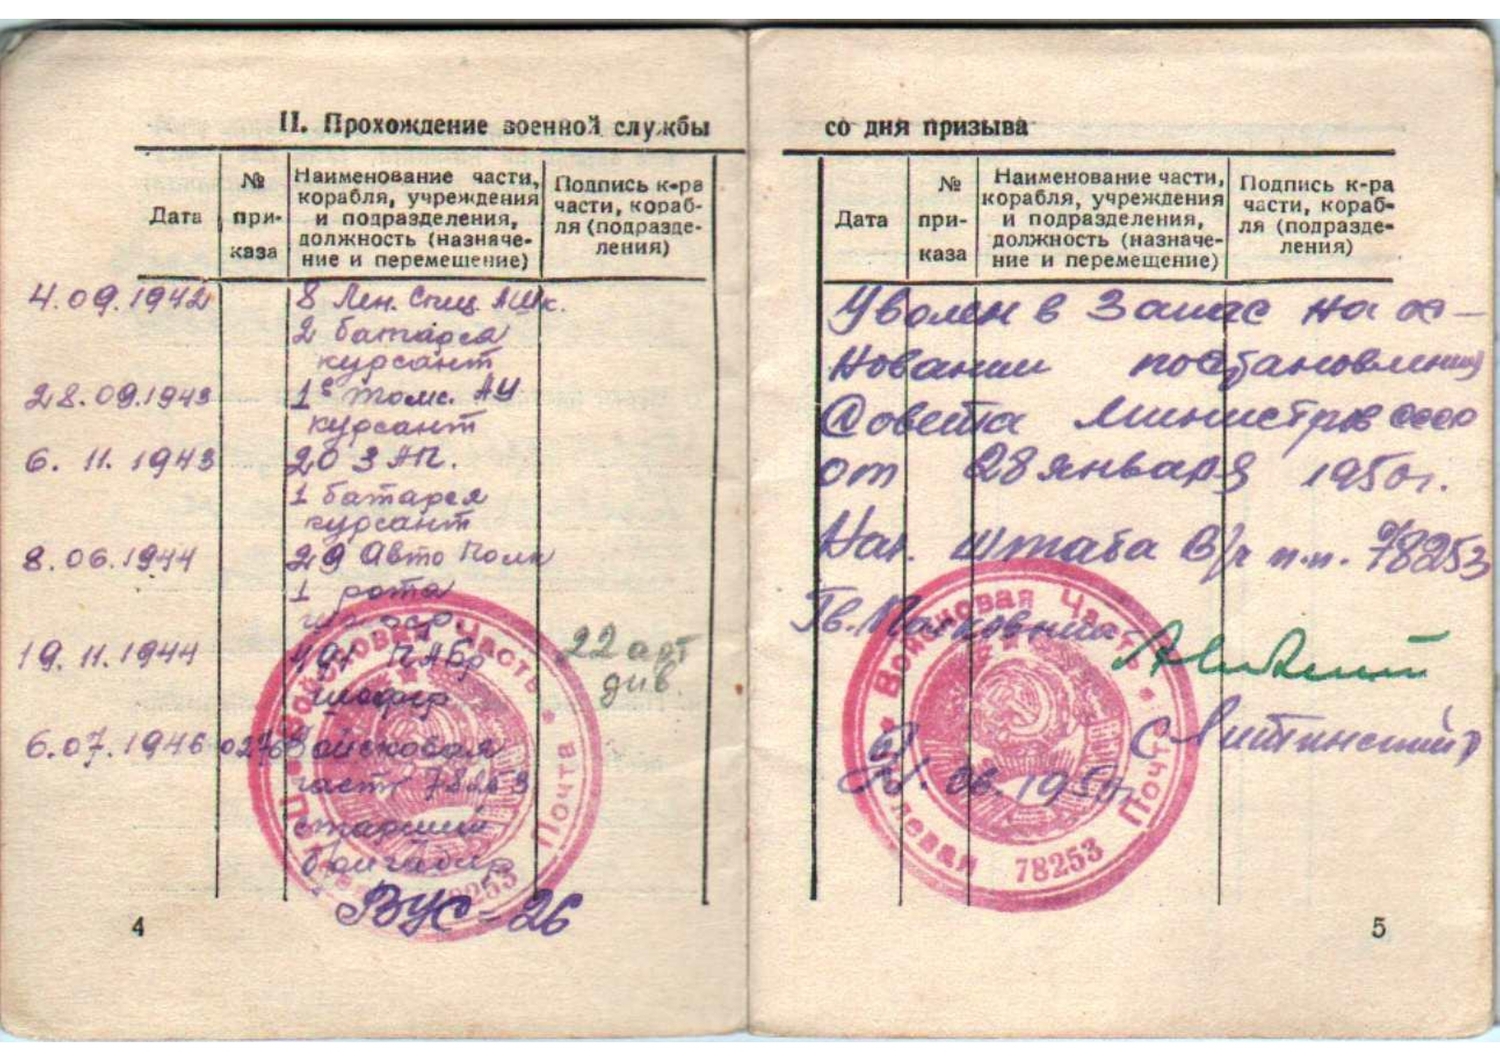 II. Прохождение военной службы
Дата
№ при-каза
Наименование части,
корабля, учреждения
и подразделения,
должность (назначе-
ние и перемещение)
Подпись к-ра
части, кораб-
ля (подразде-
ления)
4.09.1942 8 Лен. Спец. АШк.
2 батарея
курсант
28.09.1943 1е Томс. АУ
курсант
6.11.1943 20 ЗАП.
1 батарея
курсант
8.06.1944 29 Авто Полк
1 рота
шофер.
19.11.1944 ПАБр 22 арт
шофер див.
6.07.1946 0276 Войсковая
часть 78253
старший
бригадир
ВУС-26
Войсковая Часть
Полевая Почта
4
со дня призыва
Дата
№ при-каза
Наименование части,
корабля, учреждения
и подразделения,
должность (назначе-
ние и перемещение)
Подпись к-ра
части, кораб-
ля (подразде-
ления)
Уволен в Запас на ос-
новании постановления
Совета Министров СССР
от 28 января 1950г.
Нач. Штаба В/ч п.п. 78253
Гв. Полковник
06.1950г.
Войсковая Часть
Полевая Почта
78253
5